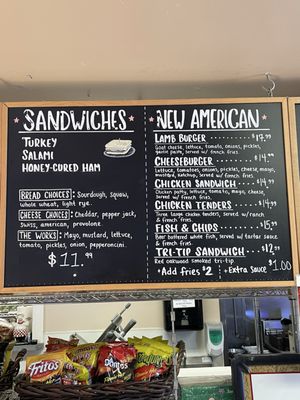 SANDWICHES
TURKEY
SALAMI
HONEY-CURED HAM
BREAD CHOICES: Sourdough, squaw,
whole wheat, light rye.
CHEESE CHOICES: Cheddar, pepper jack,
Swiss, american, provolone.
THE WORKS: Mayo, mustard, lettuce,
tomato, pickles, onion, pepperoncini.
$11.99
NEW AMERICAN
LAMB BURGER $17.99
Goat cheese, lettuce, tomato, onions, pickles,
garlic paste, served w/ french fries.
CHEESEBURGER $14.99
Lettuce, tomatoes, onions, pickles, cheese, mayo,
mustard, ketchup, served w/ french fries.
CHICKEN SANDWICH $14.99
Chicken patty, lettuce, mayo, cheese,
served w/ french fries.
CHICKEN TENDERS $14.99
Three large chicken tenders, served w/ranch
& french fries.
FISH & CHIPS $15.99
Beer battered white fish, served w/ tartar sauce
& french fries.
TRI-TIP SANDWICH $12.99
Red oakwood smoked tri-tip
Add fries $2
Extra Sauce $1.00
Fritos
Doritos